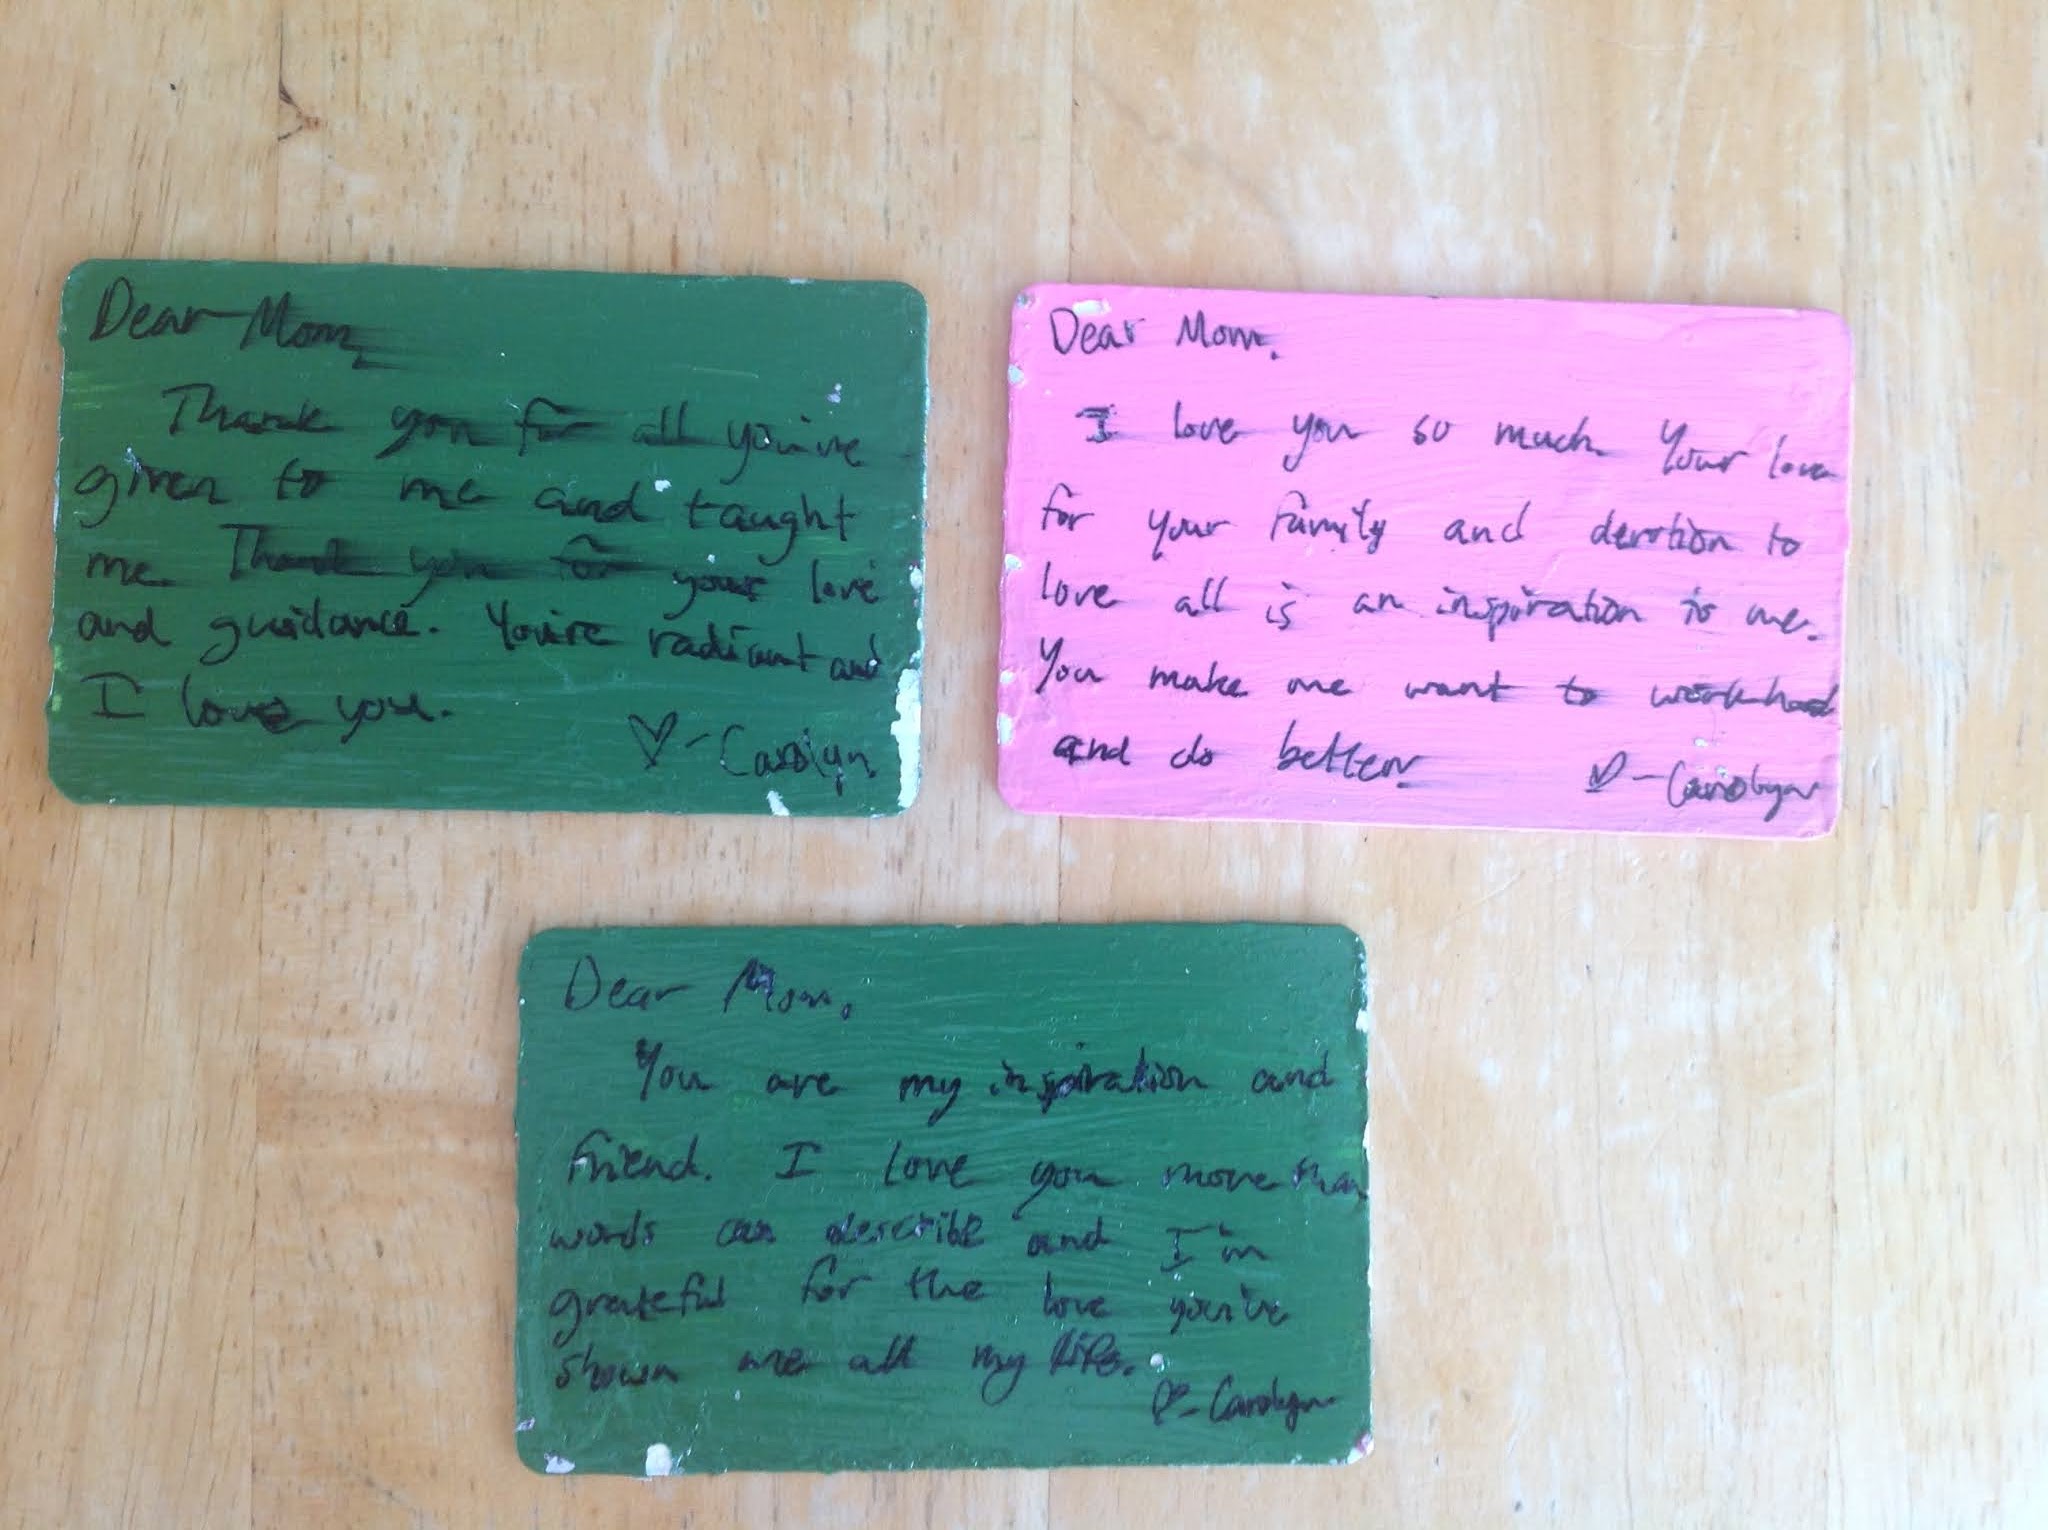 Dear Mom,
Thank you for all you've
given to me and taught
me. Thank you for your love
and guidance. You're radiant and
I love you.
♡-Carolyn
Dear Mom,
I love you so much. Your love
for your family and devotion to
love all is an inspiration to me.
You make me want to work hard
and do better
♡-Carolyn
Dear Mom,
You are my inspiration and
friend. I love you more than
words can describe and I'm
grateful for the love you've
shown me all my life.
♡-Carolyn